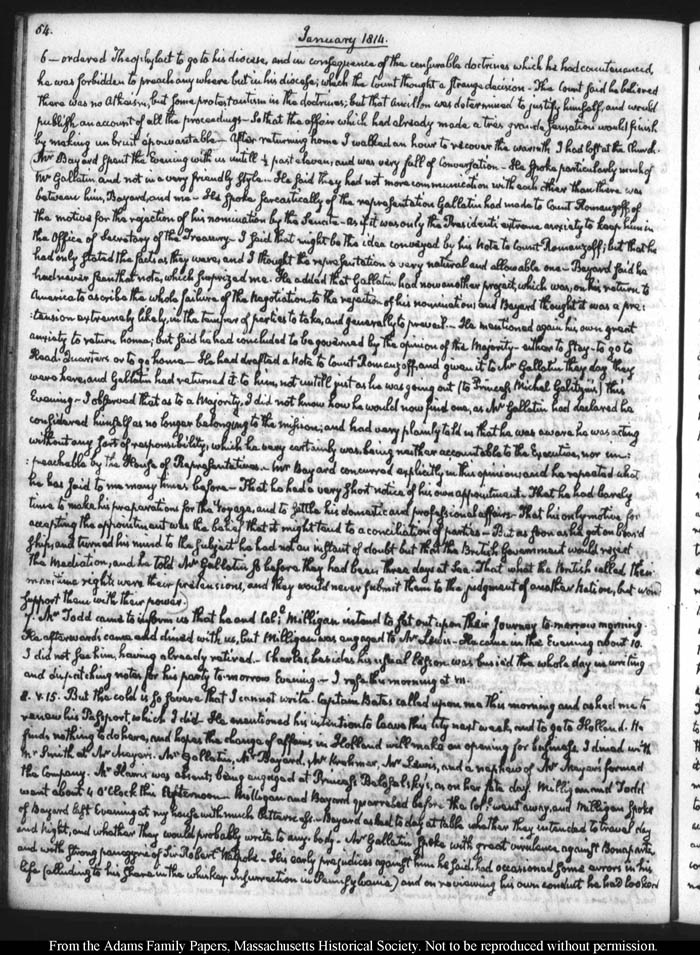 64.
January 1814.
6 — ordered Theophylact to go to his diocese, and in consequence of the censurable doctrines which he had countenanced,
he was forbidden to preach any where but in his diocese; which the Count thought a strange decision - The Count said he believed
there was no Atheism, but some protestantism in the doctrines; but that Ancillon was determined to justify himself, and would
publish an account of all the proceedings - So that the affair which had already made a très grande sensation would finish
by making un bruit épouvantable - After returning home I walked an hour to recover the warmth I had lost at the Church.
Mr Bayard spent the Evening with us untill ½ past eleven; and was very full of Conversation - He spoke particularly much of
Mr Gallatin and not in a very friendly style - He said they had not more communication with each other than there was
between him, Bayard, and me - He spoke sarcastically of the representation Gallatin had made to Count Romanzoff, of
the motives for the rejection of his nomination by the Senate - as if it was only the President's extreme anxiety to keep him in
the Office of Secretary of the Treasury - I said that might be the idea conveyed by his Note to Count Romanzoff; but that he
had only stated the facts as they were, and I thought the representation a very natural and allowable one - Bayard said he
had never seen that note, which surprized me. He added that Gallatin had now another project, which was, on his return to
America to ascribe the whole failure of the Negotiation, to the rejection of his nomination; and Bayard thought it was a pre:
:tension extremely likely, in the temper of parties to take, and generally to prevail - He mentioned again his own great
anxiety to return home; but said he had concluded to be governed by the opinion of the Majority - either to stay - to go to
Head-Quarters or to go home - He had drafted a Note to Count Romanzoff, and given it to Mr Gallatin they day they
were here, and Gallatin had returned it to him, not untill just as he was going out (to Princess Michel Galitzin) this
Evening - I observed that as to a Majority, I did not know how he would now find one, as Mr Gallatin had declared he
considered himself as no longer belonging to the mission; and had very plainly told us that he was aware he was acting
without any sort of responsibility, which he very certainly was, being neither accountable to the Executive, nor im:
:peachable by the House of Representatives. - Mr Bayard concurred explicitly in this opinion; and he repeated what
he has said to me many times before - That he had a very short notice of his own appointment. That he had barely
time to make his preparations for the Voyage, and to settle his domestic and professional affairs - That his only motive for
accepting the appointment was the belief that it might tend to a conciliation of parties - But as soon as he got on board
ship, and turned his mind to the subject he had not an instant of doubt but that the British Government would reject
the Mediation, and he told Mr Gallatin so before they had been three days at Sea. That what the British called their
maritime rights were their pretensions, and they would never submit them to the judgment of another Nation, but would
support them with their power.
7. Mr Todd came to inform us that he and Col: Milligan intend to set out upon their Journey to-morrow morning.
He afterwards came and dined with us, but Milligan was engaged to Mr Lewis - He came in the Evening about 10.
I did not see him, having already retired. - Charles, besides his usual lesson was busied the whole day in writing
and dispatching notes for his party to-morrow Evening - I rose this morning at VI.
8. V.15. But the cold is so severe that I cannot write. Captain Bates called upon me this morning and asked me to
renew his Passport, which I did. He mentioned his intention to leave this city next week, and to go to Holland. He
finds nothing to do here, and hopes the change of affairs in Holland will make an opening for business, I dined with
Mr Smith at Mr Meyer's. Mr Gallatin, Mr Bayard, Mr Krehmer, Mr Lewis, and a nephew of Mr Meyer's formed
the Company. Mr Harris was absent; being engaged at Princess Beloselsky's, as on her fête day. Milligan and Todd
went about 4 O'Clock this Afternoon. Milligan and Bayard quarreled before the Col: went away, and Milligan spoke
of Bayard last Evening at my house with much bitterness. - Bayard asked to day at table whether they intended to travel day
and night, and whether they would probably write to any body. - Mr Gallatin spoke with great virulence against Bonaparte,
and with strong panegyric of Sir Robert Walpole - His early prejudices against him he said, had occasioned some errors in his
life (alluding to his share in the whiskey insurrection in Pennsylvania) and on reviewing his own conduct he had looked
From the Adams Family Papers, Massachusetts Historical Society. Not to be reproduced without permission.